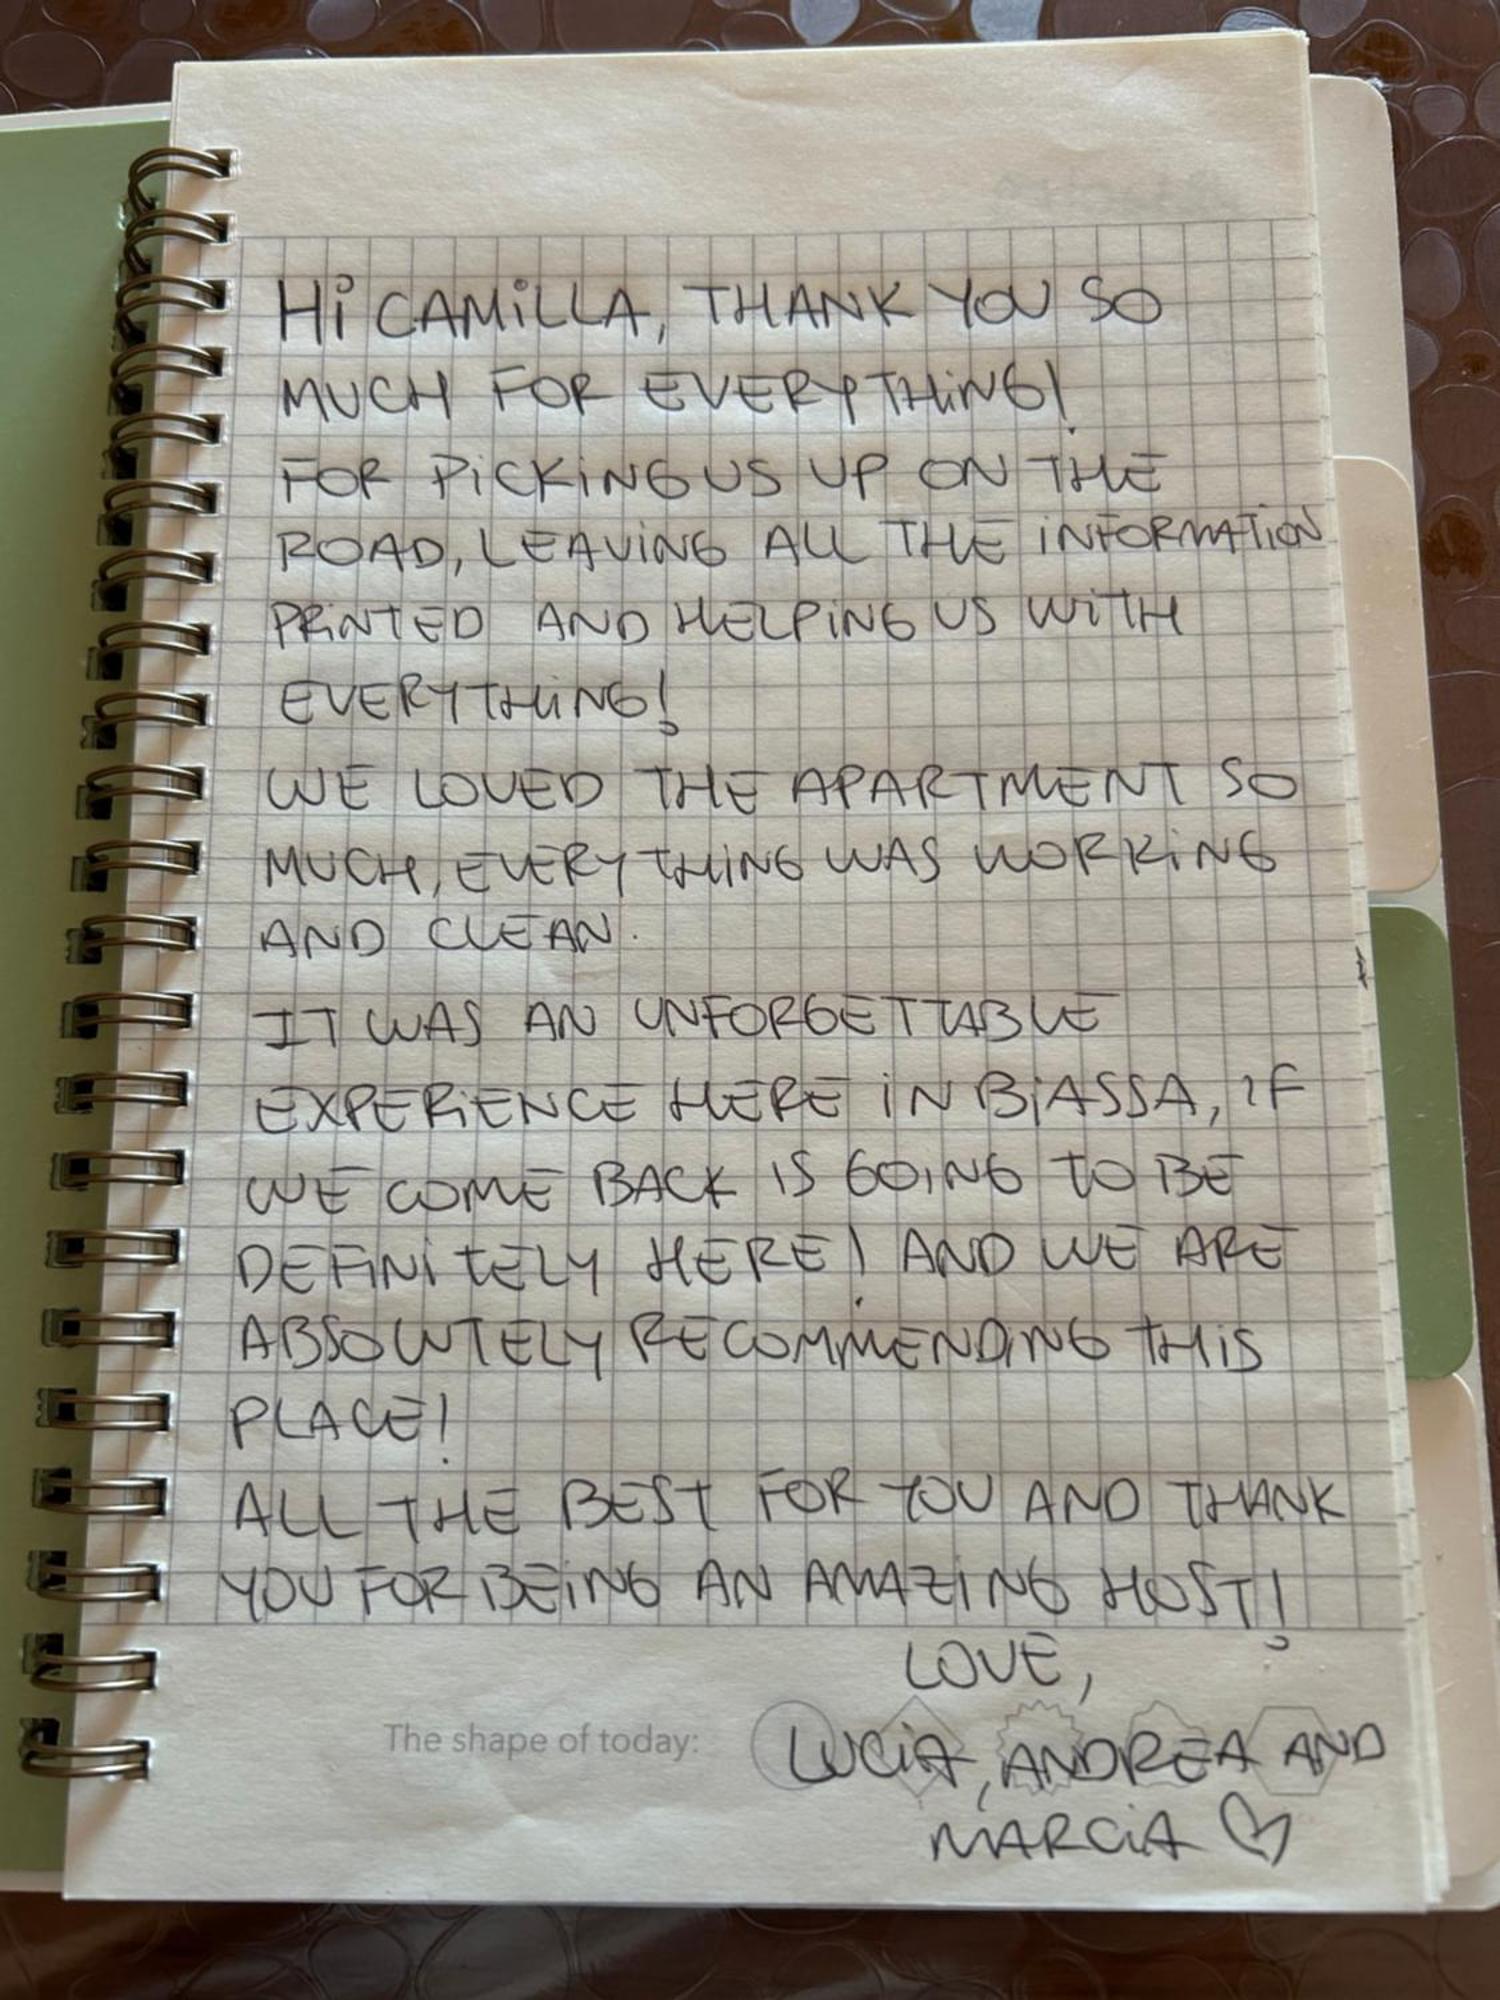 Hi CAMiLLA, THANK YOU SO
MUCH FOR EVERYTHiNG!
FOR PiCKiNG US UP ON THE
ROAD, LEAViNG ALL THE iNFORMATiON
PRiNTED AND HELPiNG US WiTH
EVERYTHiNG!
WE LOVED THE APARTMENT SO
MUCH, EVERYTHiNG WAS WORKiNG
AND CLEAN.
IT WAS AN UNFORGETTABLE
EXPERiENCE HERE iN BiASSA, IF
WE COME BACK IS GOiNG TO BE
DEFiNiTELY HERE! AND WE ARE
ABSOLUTELY RECOMMENDiNG THiS
PLACE!
ALL THE BEST FOR YOU AND THANK
YOU FOR BEiNG AN AMAZiNG HOST!
LOVE,
The shape of today: LUCiA, ANDREA AND
MARCiA ♡